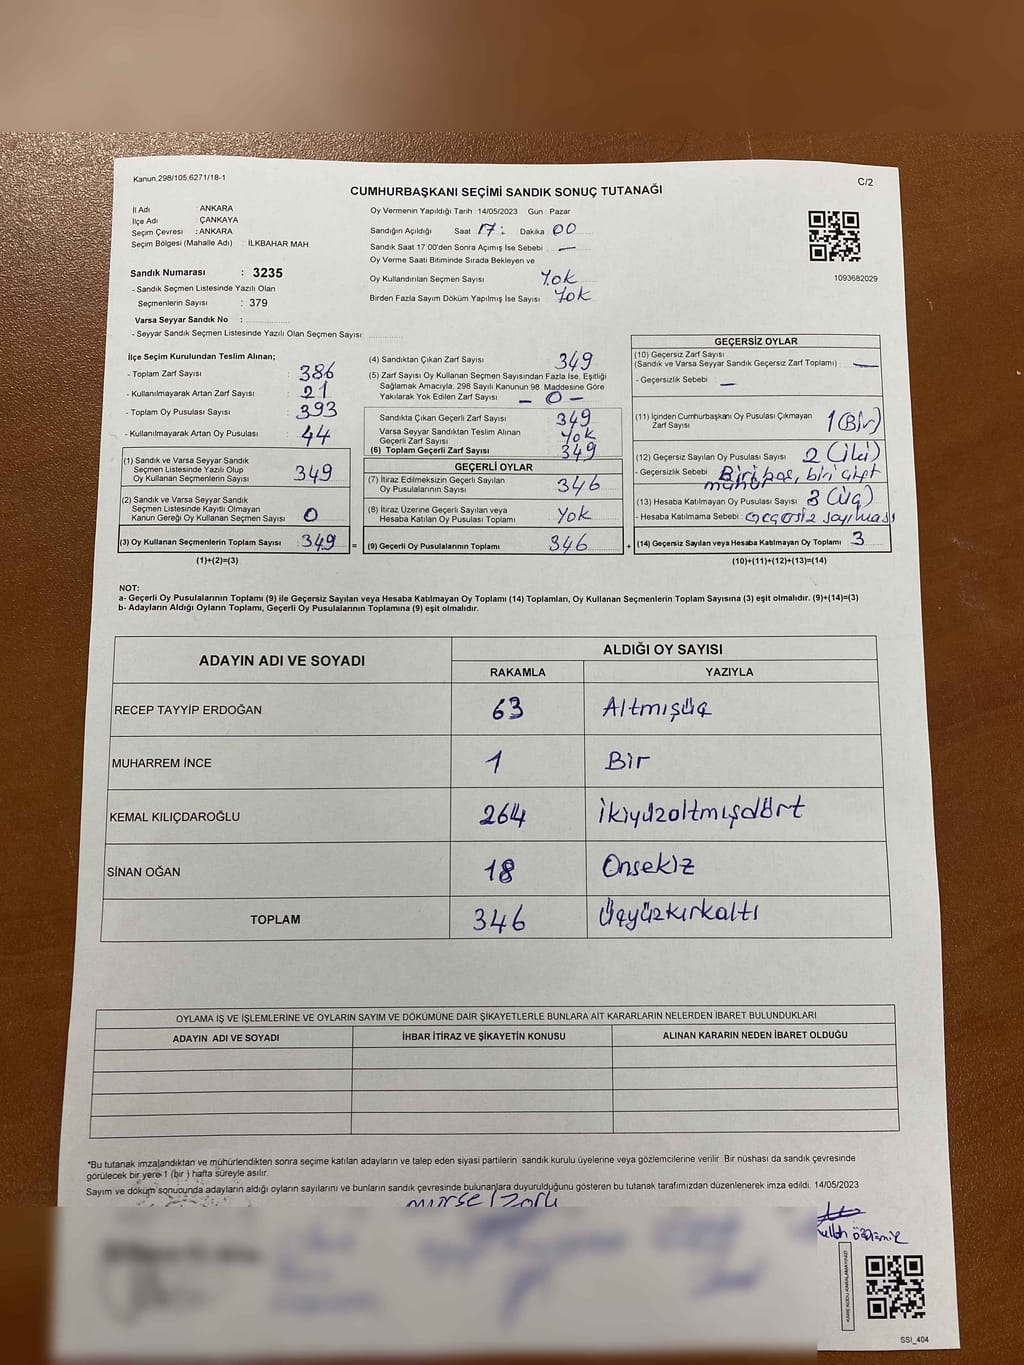 Kanun.298/105,6271/18-1
C/2
CUMHURBAŞKANI SEÇİMİ SANDIK SONUÇ TUTANAĞI
İl Adı : ANKARA
İlçe Adı : ÇANKAYA
Seçim Çevresi : ANKARA
Seçim Bölgesi (Mahalle Adı) : İLKBAHAR MAH.
Sandık Numarası : 3235
- Sandık Seçmen Listesinde Yazılı Olan
Seçmenlerin Sayısı : 379
Varsa Seyyar Sandık No :
- Seyyar Sandık Seçmen Listesinde Yazılı Olan Seçmen Sayısı:
Oy Vermenin Yapıldığı Tarih : 14/05/2023 Gün : Pazar
Sandığın Açıldığı Saat 17: Dakika 00
Sandık Saat 17:00'den Sonra Açımış İse Sebebi : —
Oy Verme Saati Bitiminde Sırada Bekleyen ve
Oy Kullandırılan Seçmen Sayısı Yok
Birden Fazla Sayım Döküm Yapılmış İse Sayısı Yok
1093682029
İlçe Seçim Kurulundan Teslim Alınan;
- Toplam Zarf Sayısı : 386
- Kullanılmayarak Artan Zarf Sayısı : 21
- Toplam Oy Pusulası Sayısı : 393
- Kullanılmayarak Artan Oy Pusulası : 44
(1) Sandık ve Varsa Seyyar Sandık
Seçmen Listesinde Yazılı Olup
Oy Kullanan Seçmenlerin Sayısı : 349
(2) Sandık ve Varsa Seyyar Sandık
Seçmen Listesinde Kayıtlı Olmayan
Kanun Gereği Oy Kullanan Seçmen Sayısı : 0
(3) Oy Kullanan Seçmenlerin Toplam Sayısı : 349
(1)+(2)=(3)
(4) Sandıktan Çıkan Zarf Sayısı 349
(5) Zarf Sayısı Oy Kullanan Seçmen Sayısından Fazla İse, Eşitliği
Sağlamak Amacıyla, 298 Sayılı Kanunun 98. Maddesine Göre
Yakılarak Yok Edilen Zarf Sayısı : — 0 —
Sandıkta Çıkan Geçerli Zarf Sayısı : 349
Varsa Seyyar Sandıktan Teslim Alınan
Geçerli Zarf Sayısı : Yok
(6) Toplam Geçerli Zarf Sayısı : 349
GEÇERLİ OYLAR
(7) İtiraz Edilmeksizin Geçerli Sayılan
Oy Pusulalarının Sayısı : 346
(8) İtiraz Üzerine Geçerli Sayılan veya
Hesaba Katılan Oy Pusulası Toplamı : Yok
= (9) Geçerli Oy Pusulalarının Toplamı : 346
GEÇERSİZ OYLAR
(10) Geçersiz Zarf Sayısı
(Sandık ve Varsa Seyyar Sandık Geçersiz Zarf Toplamı) : —
- Geçersizlik Sebebi : —
(11) İçinden Cumhurbaşkanı Oy Pusulası Çıkmayan
Zarf Sayısı : 1 (Bir)
(12) Geçersiz Sayılan Oy Pusulası Sayısı : 2 (iki)
- Geçersizlik Sebebi : Biri boş, biri çift
mühür
(13) Hesaba Katılmayan Oy Pusulası Sayısı : 3 (üç)
- Hesaba Katılmama Sebebi : Geçersiz sayılması
+ (14) Geçersiz Sayılan veya Hesaba Katılmayan Oy Toplamı : 3
(10)+(11)+(12)+(13)=(14)
NOT:
a- Geçerli Oy Pusulalarının Toplamı (9) ile Geçersiz Sayılan veya Hesaba Katılmayan Oy Toplamı (14) Toplamları, Oy Kullanan Seçmenlerin Toplam Sayısına (3) eşit olmalıdır. (9)+(14)=(3)
b- Adayların Aldığı Oyların Toplamı, Geçerli Oy Pusulalarının Toplamına (9) eşit olmalıdır.
ADAYIN ADI VE SOYADI
ALDIĞI OY SAYISI
RAKAMLA YAZIYLA
RECEP TAYYİP ERDOĞAN 63 Altmışüç
MUHARREM İNCE 1 Bir
KEMAL KILIÇDAROĞLU 264 İkiyüzaltmışdört
SİNAN OĞAN 18 Onsekiz
TOPLAM 346 Üçyüzkırkaltı
OYLAMA İŞ VE İŞLEMLERİNE VE OYLARIN SAYIM VE DÖKÜMÜNE DAİR ŞİKAYETLERLE BUNLARA AİT KARARLARIN NELERDEN İBARET BULUNDUKLARI
ADAYIN ADI VE SOYADI İHBAR İTİRAZ VE ŞİKAYETİN KONUSU ALINAN KARARIN NEDEN İBARET OLDUĞU
*Bu tutanak imzalandıktan ve mühürlendikten sonra seçime katılan adayların ve talep eden siyasi partilerin sandık kurulu üyelerine veya gözlemcilerine verilir. Bir nüshası da sandık çevresinde
görülecek bir yere 1 (bir ) hafta süreyle asılır.
Sayım ve döküm sonucunda adayların aldığı oyların sayılarını ve bunların sandık çevresinde bulunanlara duyurulduğunu gösteren bu tutanak tarafımızdan düzenlenerek imza edildi. 14/05/2023
SSI_404